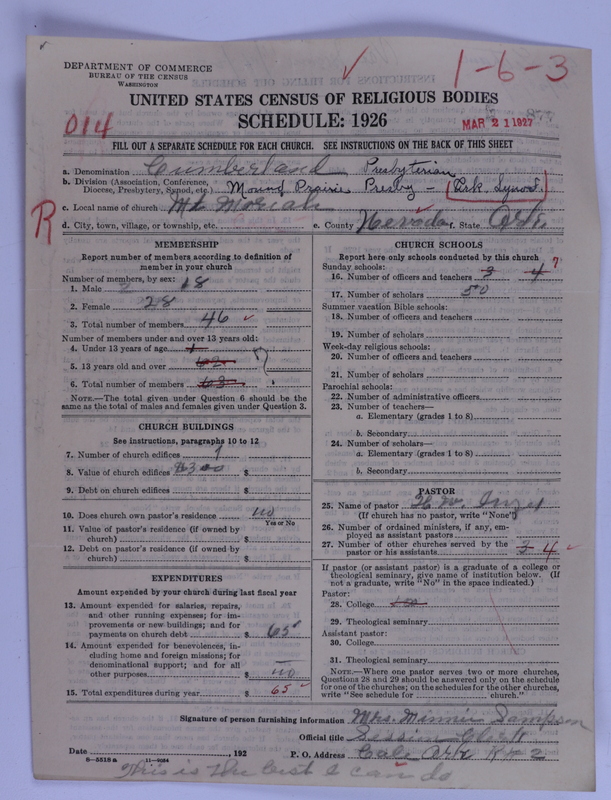 DEPARTMENT OF COMMERCE
BUREAU OF THE CENSUS
WASHINGTON
1-6-3
UNITED STATES CENSUS OF RELIGIOUS BODIES
SCHEDULE: 1926
MAR 21 1927
014
FILL OUT A SEPARATE SCHEDULE FOR EACH CHURCH. SEE INSTRUCTIONS ON THE BACK OF THIS SHEET
a. Denomination Cumberland Presbyterian
b. Division (Association, Conference, Diocese, Presbytery, Synod, etc.) Mound Prairie Presby - (Ark. Synod.
c. Local name of church Mt Moriah
R
d. City, town, village, or township, etc. e. County Nevada f. State Ark.
MEMBERSHIP
Report number of members according to definition of
member in your church
Number of members, by sex:
1. Male 18
2. Female 28
3. Total number of members 46
Number of members under and over 13 years old:
4. Under 13 years of age 1
5. 13 years old and over 62
6. Total number of members 63
NOTE.—The total given under Question 6 should be the
same as the total of males and females given under Question 3.
CHURCH BUILDINGS
See instructions, paragraphs 10 to 12
7. Number of church edifices 1
8. Value of church edifices $300 $
9. Debt on church edifices $
10. Does church own pastor's residence? no
Yes or No
11. Value of pastor's residence (if owned by
church) $
12. Debt on pastor's residence (if owned by
church) $
EXPENDITURES
Amount expended by your church during last fiscal year
13. Amount expended for salaries, repairs,
and other running expenses; for im-
provements or new buildings; and for
payments on church debt $ 65
14. Amount expended for benevolences, in-
cluding home and foreign missions; for
denominational support; and for all
other purposes $ no
15. Total expenditures during year $ 65
CHURCH SCHOOLS
Report here only schools conducted by this church
Sunday schools:
16. Number of officers and teachers 3 4 7
17. Number of scholars 50
Summer vacation Bible schools:
18. Number of officers and teachers
19. Number of scholars
Week-day religious schools:
20. Number of officers and teachers
21. Number of scholars
Parochial schools:
22. Number of administrative officers
23. Number of teachers—
a. Elementary (grades 1 to 8)
b. Secondary
24. Number of scholars—
a. Elementary (grades 1 to 8)
b. Secondary
PASTOR
25. Name of pastor H. W.
(If church has no pastor, write "None")
26. Number of ordained ministers, if any, em-
ployed as assistant pastors
27. Number of other churches served by the
pastor or his assistants 3 4
If pastor (or assistant pastor) is a graduate of a college or
theological seminary, give name of institution below. (If
not a graduate, write "No" in the space indicated.)
Pastor:
28. College
29. Theological seminary
Assistant pastor:
30. College
31. Theological seminary
NOTE.—Where one pastor serves two or more churches,
Questions 28 and 29 should be answered only on the schedule
for one of the churches; on the schedules for the other churches,
write "See schedule for church."
Signature of person furnishing information Mrs. Minnie Sampson
Official title Session Clerk
Date , 192 P. O. Address Cale Ark R#2
8—5518a 11—8024
This is the best I can do